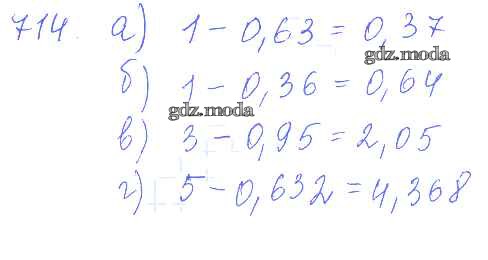 714. а) 1 - 0,63 = 0,37
gdz.moda
б) 1 - 0,36 = 0,64
gdz.moda
в) 3 - 0,95 = 2,05
г) 5 - 0,632 = 4,368